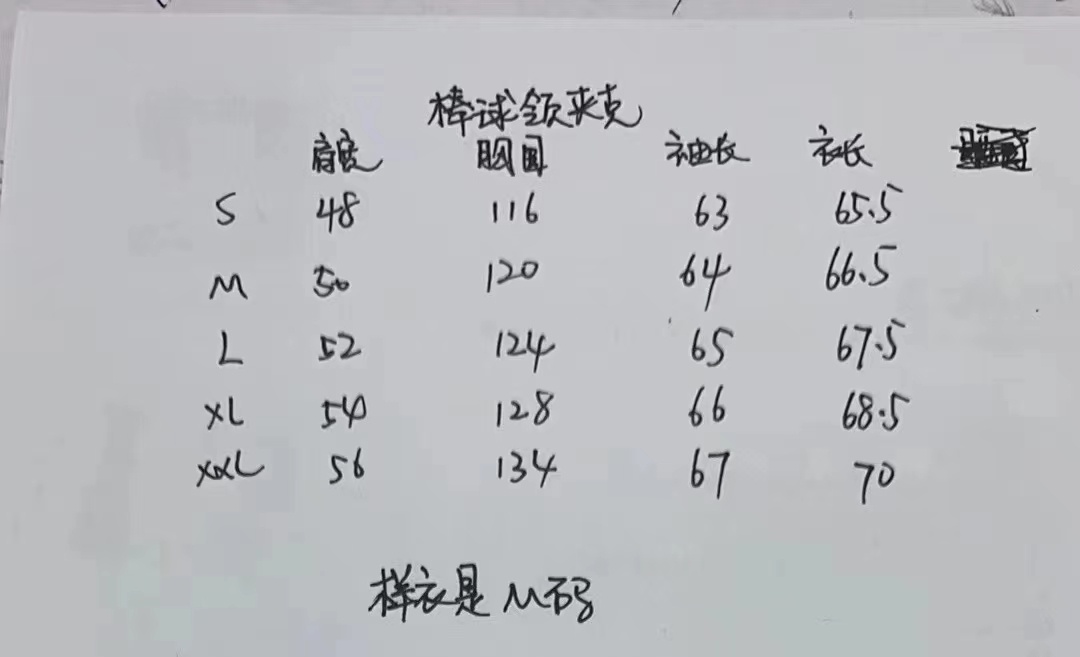 棒球领夹克
肩宽 胸围 袖长 衣长
S 48 116 63 65.5
M 50 120 64 66.5
L 52 124 65 67.5
XL 54 128 66 68.5
XXL 56 134 67 70
样衣是M码